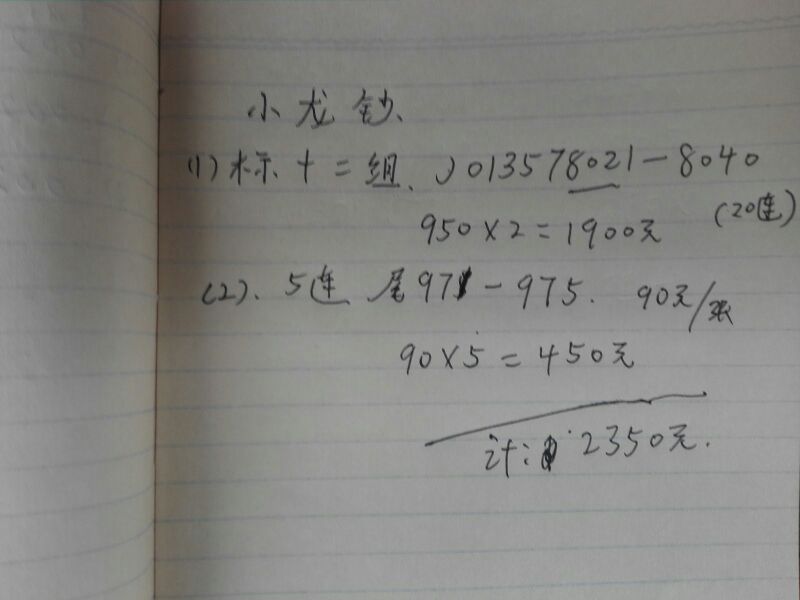 小龙钞、
(1)标十二组、J013578021-8040
(20连)
950×2=1900元
(2)、5连 尾971-975. 90元/张
90×5=450元
计: 2350元.